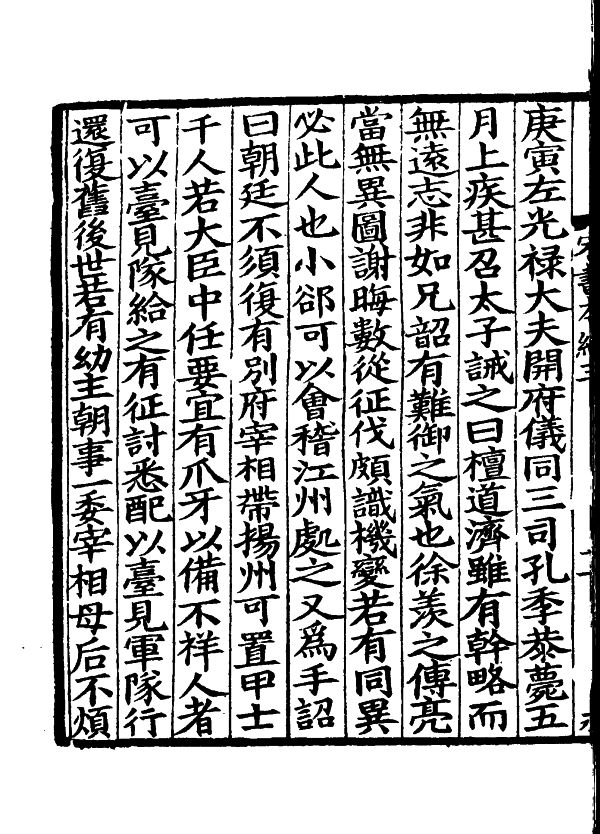 庚寅左光祿大夫開府儀同三司孔季恭薨五
月上疾甚召太子誡之曰檀道濟雖有幹略而
無遠志非如兄韶有難御之氣也徐羨之傅亮
當無異圖謝晦數從征伐頗識機變若有同異
必此人也小郤可以會稽江州處之又爲手詔
曰朝廷不須復有別府宰相帶揚州可置甲士
千人若大臣中任要宜有爪牙以備不祥人者
可以臺見隊給之有征討悉配以臺見軍隊行
還復舊後世若有幼主朝事一委宰相母后不煩